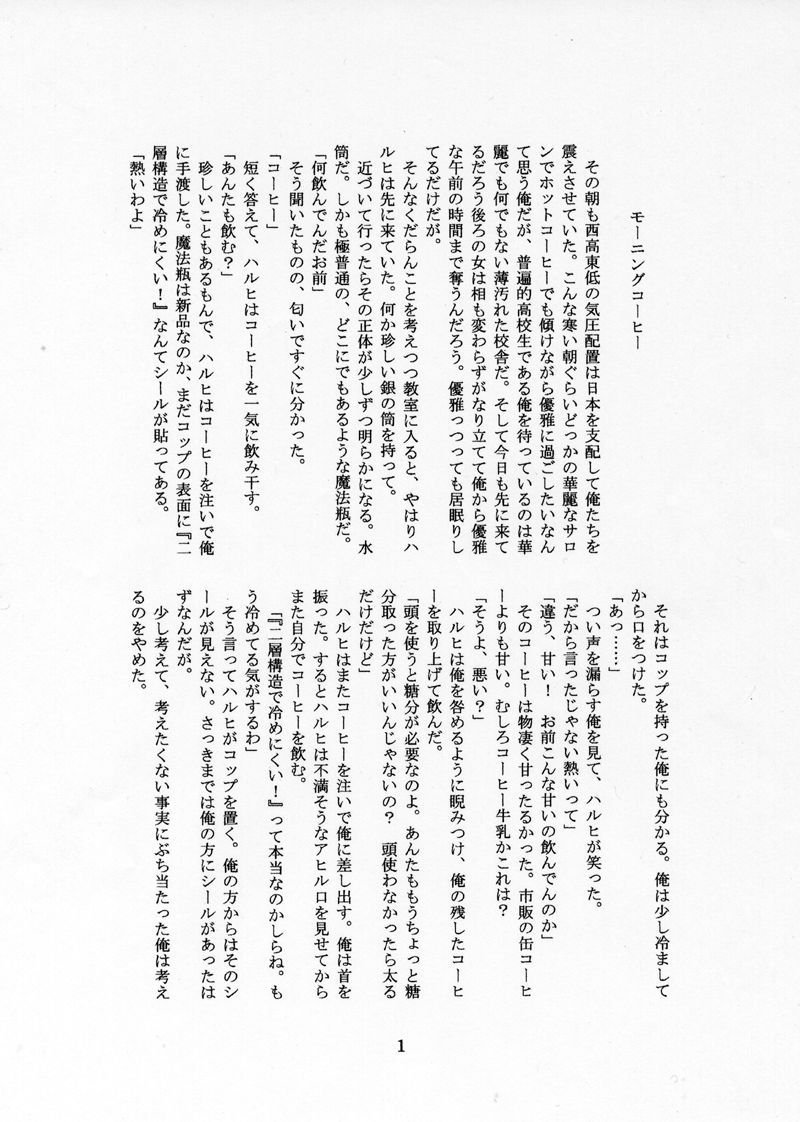 モーニングコーヒー
　その朝も西高東低の気圧配置は日本を支配して俺たちを
震えさせていた。こんな寒い朝ぐらいどっかの華麗なサロ
ンでホットコーヒーでも傾けながら優雅に過ごしたいなん
て思う俺だが、普遍的高校生である俺を待っているのは華
麗でも何でもない薄汚れた校舎だ。そして今日も先に来て
るだろう後ろの女は相も変わらずがなり立てて俺から優雅
な午前の時間まで奪うんだろう。優雅っつっても居眠りし
てるだけだが。
　そんなくだらんことを考えつつ教室に入ると、やはりハ
ルヒは先に来ていた。何か珍しい銀の筒を持って。
　近づいて行ったらその正体が少しずつ明らかになる。水
筒だ。しかも極普通の、どこにでもあるような魔法瓶だ。
「何飲んでんだお前」
　そう聞いたものの、匂いですぐに分かった。
「コーヒー」
　短く答えて、ハルヒはコーヒーを一気に飲み干す。
「あんたも飲む？」
　珍しいこともあるもんで、ハルヒはコーヒーを注いで俺
に手渡した。魔法瓶は新品なのか、まだコップの表面に『二
層構造で冷めにくい！』なんてシールが貼ってある。
「熱いわよ」
　それはコップを持った俺にも分かる。俺は少し冷まして
から口をつけた。
「あっ……」
　つい声を漏らす俺を見て、ハルヒが笑った。
「だから言ったじゃない熱いって」
「違う、甘い！　お前こんな甘いの飲んでんのか」
　そのコーヒーは物凄く甘ったるかった。市販の缶コーヒ
ーよりも甘い。むしろコーヒー牛乳かこれは？
「そうよ、悪い？」
　ハルヒは俺を咎めるように睨みつけ、俺の残したコーヒ
ーを取り上げて飲んだ。
「頭を使うと糖分が必要なのよ。あんたももうちょっと糖
分取った方がいいんじゃないの？　頭使わなかったら太る
だけだけど」
　ハルヒはまたコーヒーを注いで俺に差し出す。俺は首を
振った。するとハルヒは不満そうなアヒル口を見せてから
また自分でコーヒーを飲む。
「『二層構造で冷めにくい！』って本当なのかしらね。も
う冷めてる気がするわ」
　そう言ってハルヒがコップを置く。俺の方からはそのシ
ールが見えない。さっきまでは俺の方にシールがあったは
ずなんだが。
　少し考えて、考えたくない事実にぶち当たった俺は考え
るのをやめた。
1